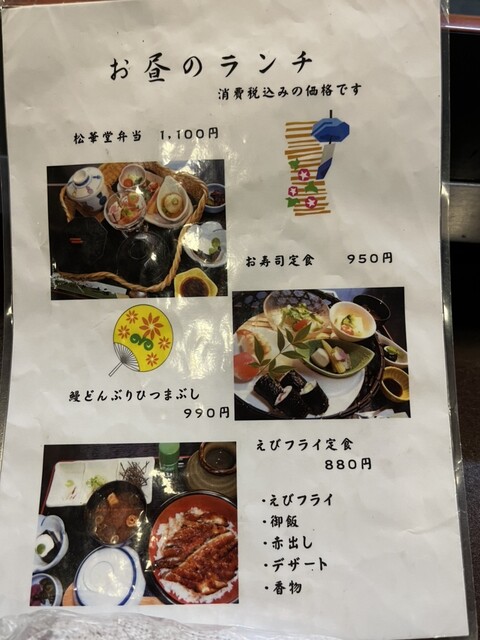 お昼のランチ
消費税込みの価格です
松華堂弁当 1,100円
お寿司定食 950円
鰻どんぶりひつまぶし
990円
えびフライ定食
880円
・えびフライ
・御飯
・赤出し
・デザート
・香物